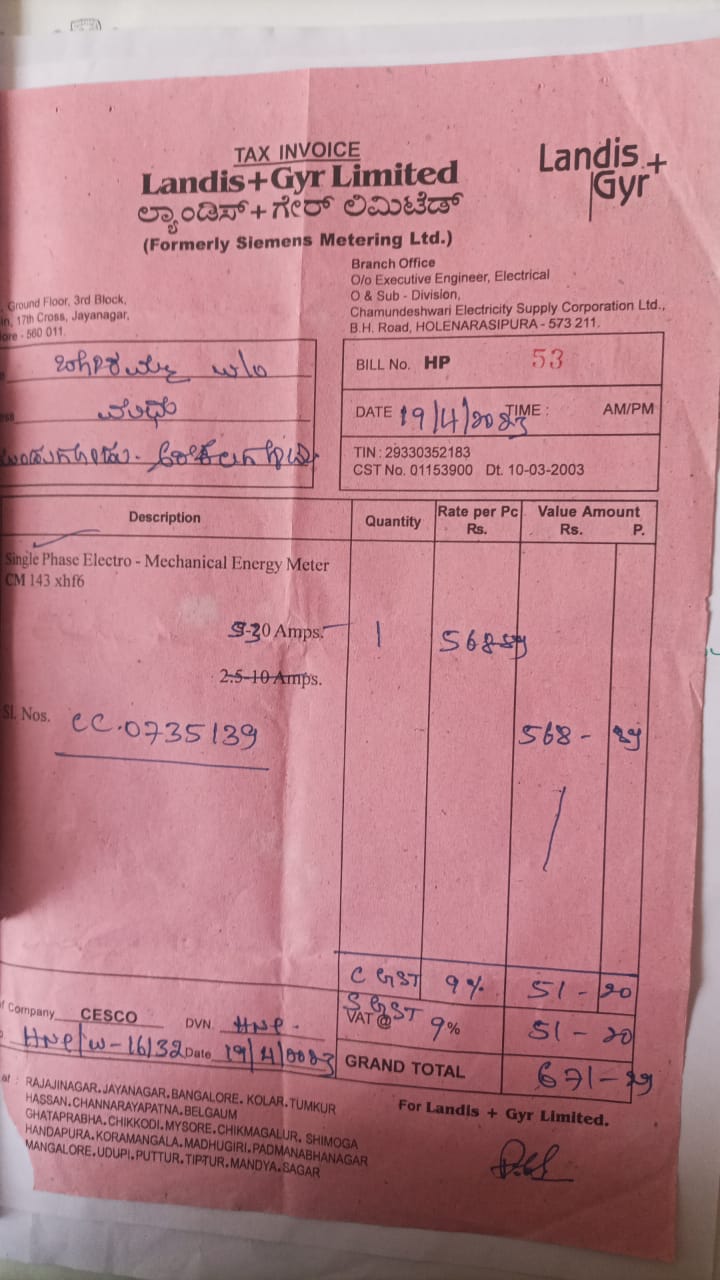 TAX INVOICE
Landis+Gyr Limited
ಲ್ಯಾಂಡಿಸ್+ಗೇರ್ ಲಿಮಿಟೆಡ್
(Formerly Siemens Metering Ltd.)
Landis+
Gyr
, Ground Floor, 3rd Block,
in, 17th Cross, Jayanagar,
ore - 560 011.
Branch Office
O/o Executive Engineer, Electrical
O & Sub - Division,
Chamundeshwari Electricity Supply Corporation Ltd.,
B.H. Road, HOLENARASIPURA - 573 211.
w/o
BILL No. HP 53
DATE 19/4/2023 TIME : AM/PM
TIN : 29330352183
CST No. 01153900 Dt. 10-03-2003
Description Quantity Rate per Pc Rs. Value Amount Rs. P.
Single Phase Electro - Mechanical Energy Meter
CM 143 xhf6
5-30 Amps. 1 568-
2.5-10 Amps.
Sl. Nos. CC.0735139
568 -
C GST 9% 51 - 20
S GST
VAT @ 9% 51 - 20
GRAND TOTAL 671 -
f Company CESCO DVN. HNP.
HNP/W-16/32 Date 19/4/2023
at : RAJAJINAGAR. JAYANAGAR. BANGALORE. KOLAR. TUMKUR
HASSAN. CHANNARAYAPATNA. BELGAUM
GHATAPRABHA. CHIKKODI. MYSORE. CHIKMAGALUR. SHIMOGA
HANDAPURA. KORAMANGALA. MADHUGIRI. PADMANABHANAGAR
MANGALORE. UDUPI. PUTTUR. TIPTUR. MANDYA. SAGAR
For Landis + Gyr Limited.